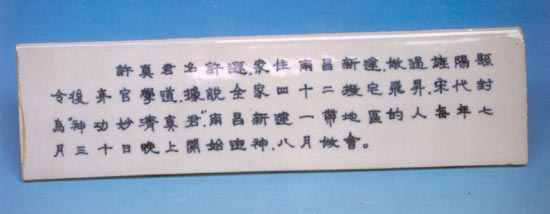 許真君名許遜,家住南昌新建,做過旌陽縣
令後弃官學道,據說全家四十二宅飛昇,宋代封
爲"神功妙濟真君",南昌新建一帶地區的人每年七
月三十日晚上開始迎神,八月做會。